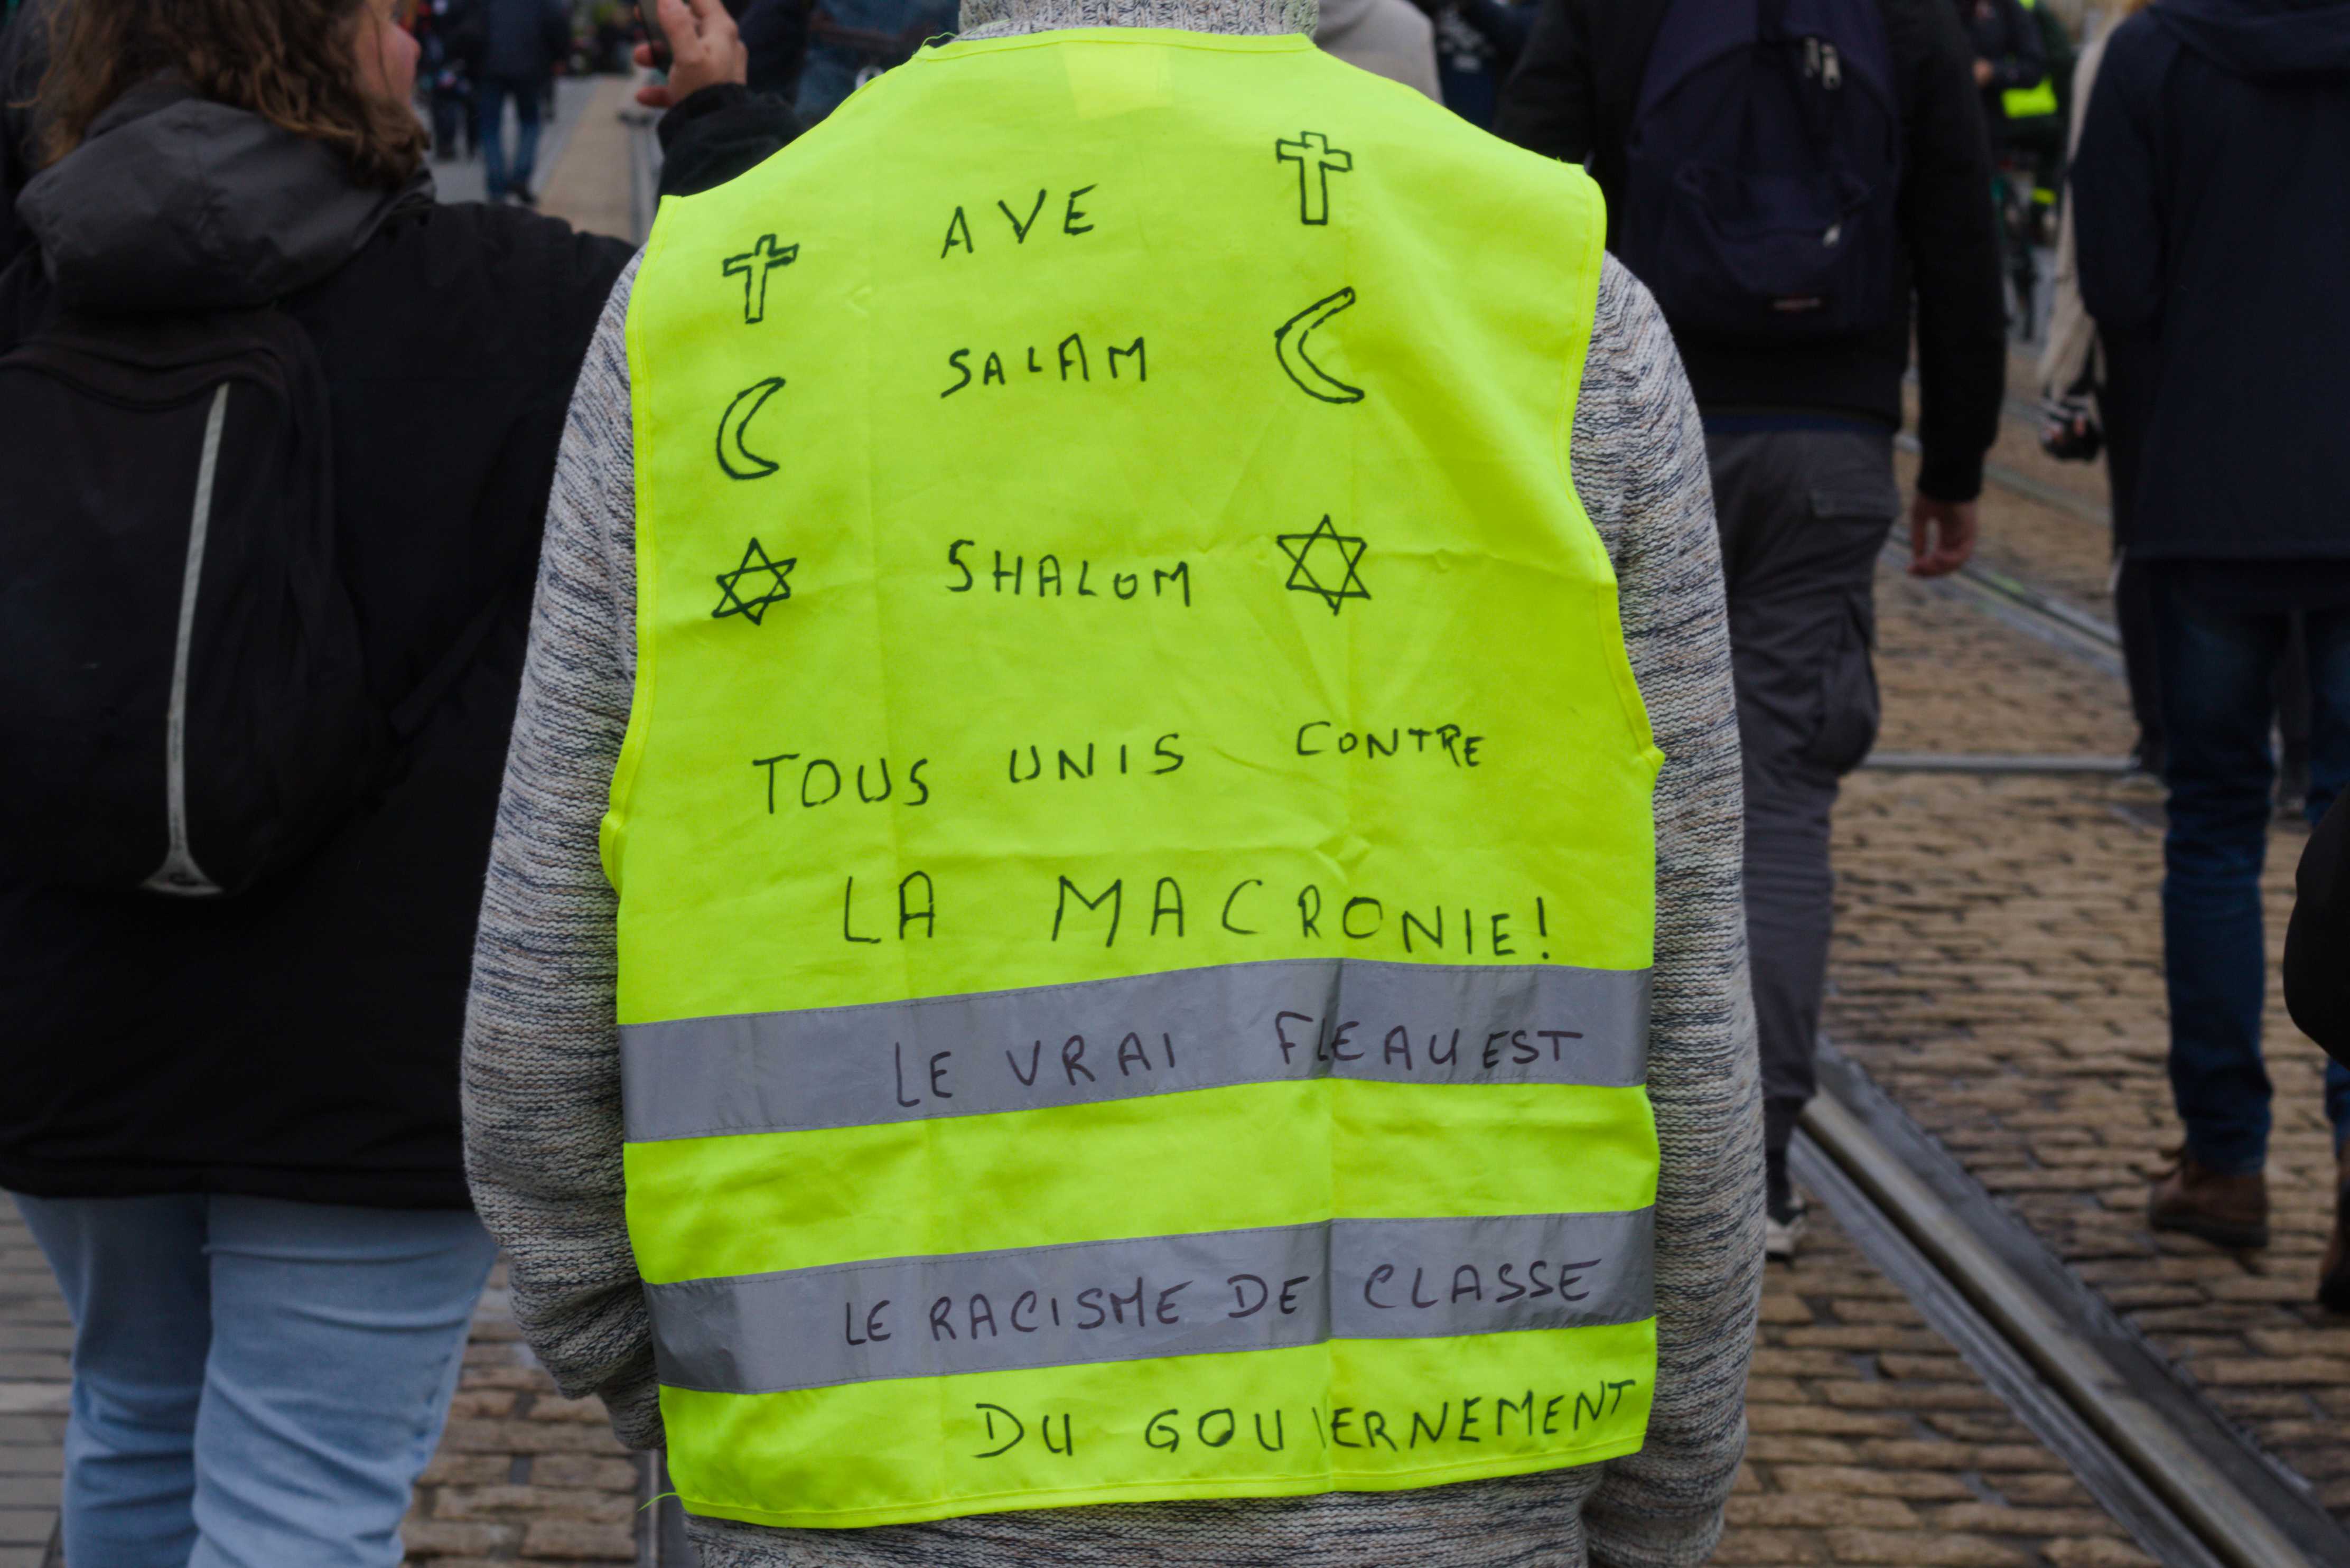 AVE
SALAM
SHALOM
TOUS UNIS CONTRE
LA MACRONIE!
LE VRAI FLEAU EST
LE RACISME DE CLASSE
DU GOUVERNEMENT